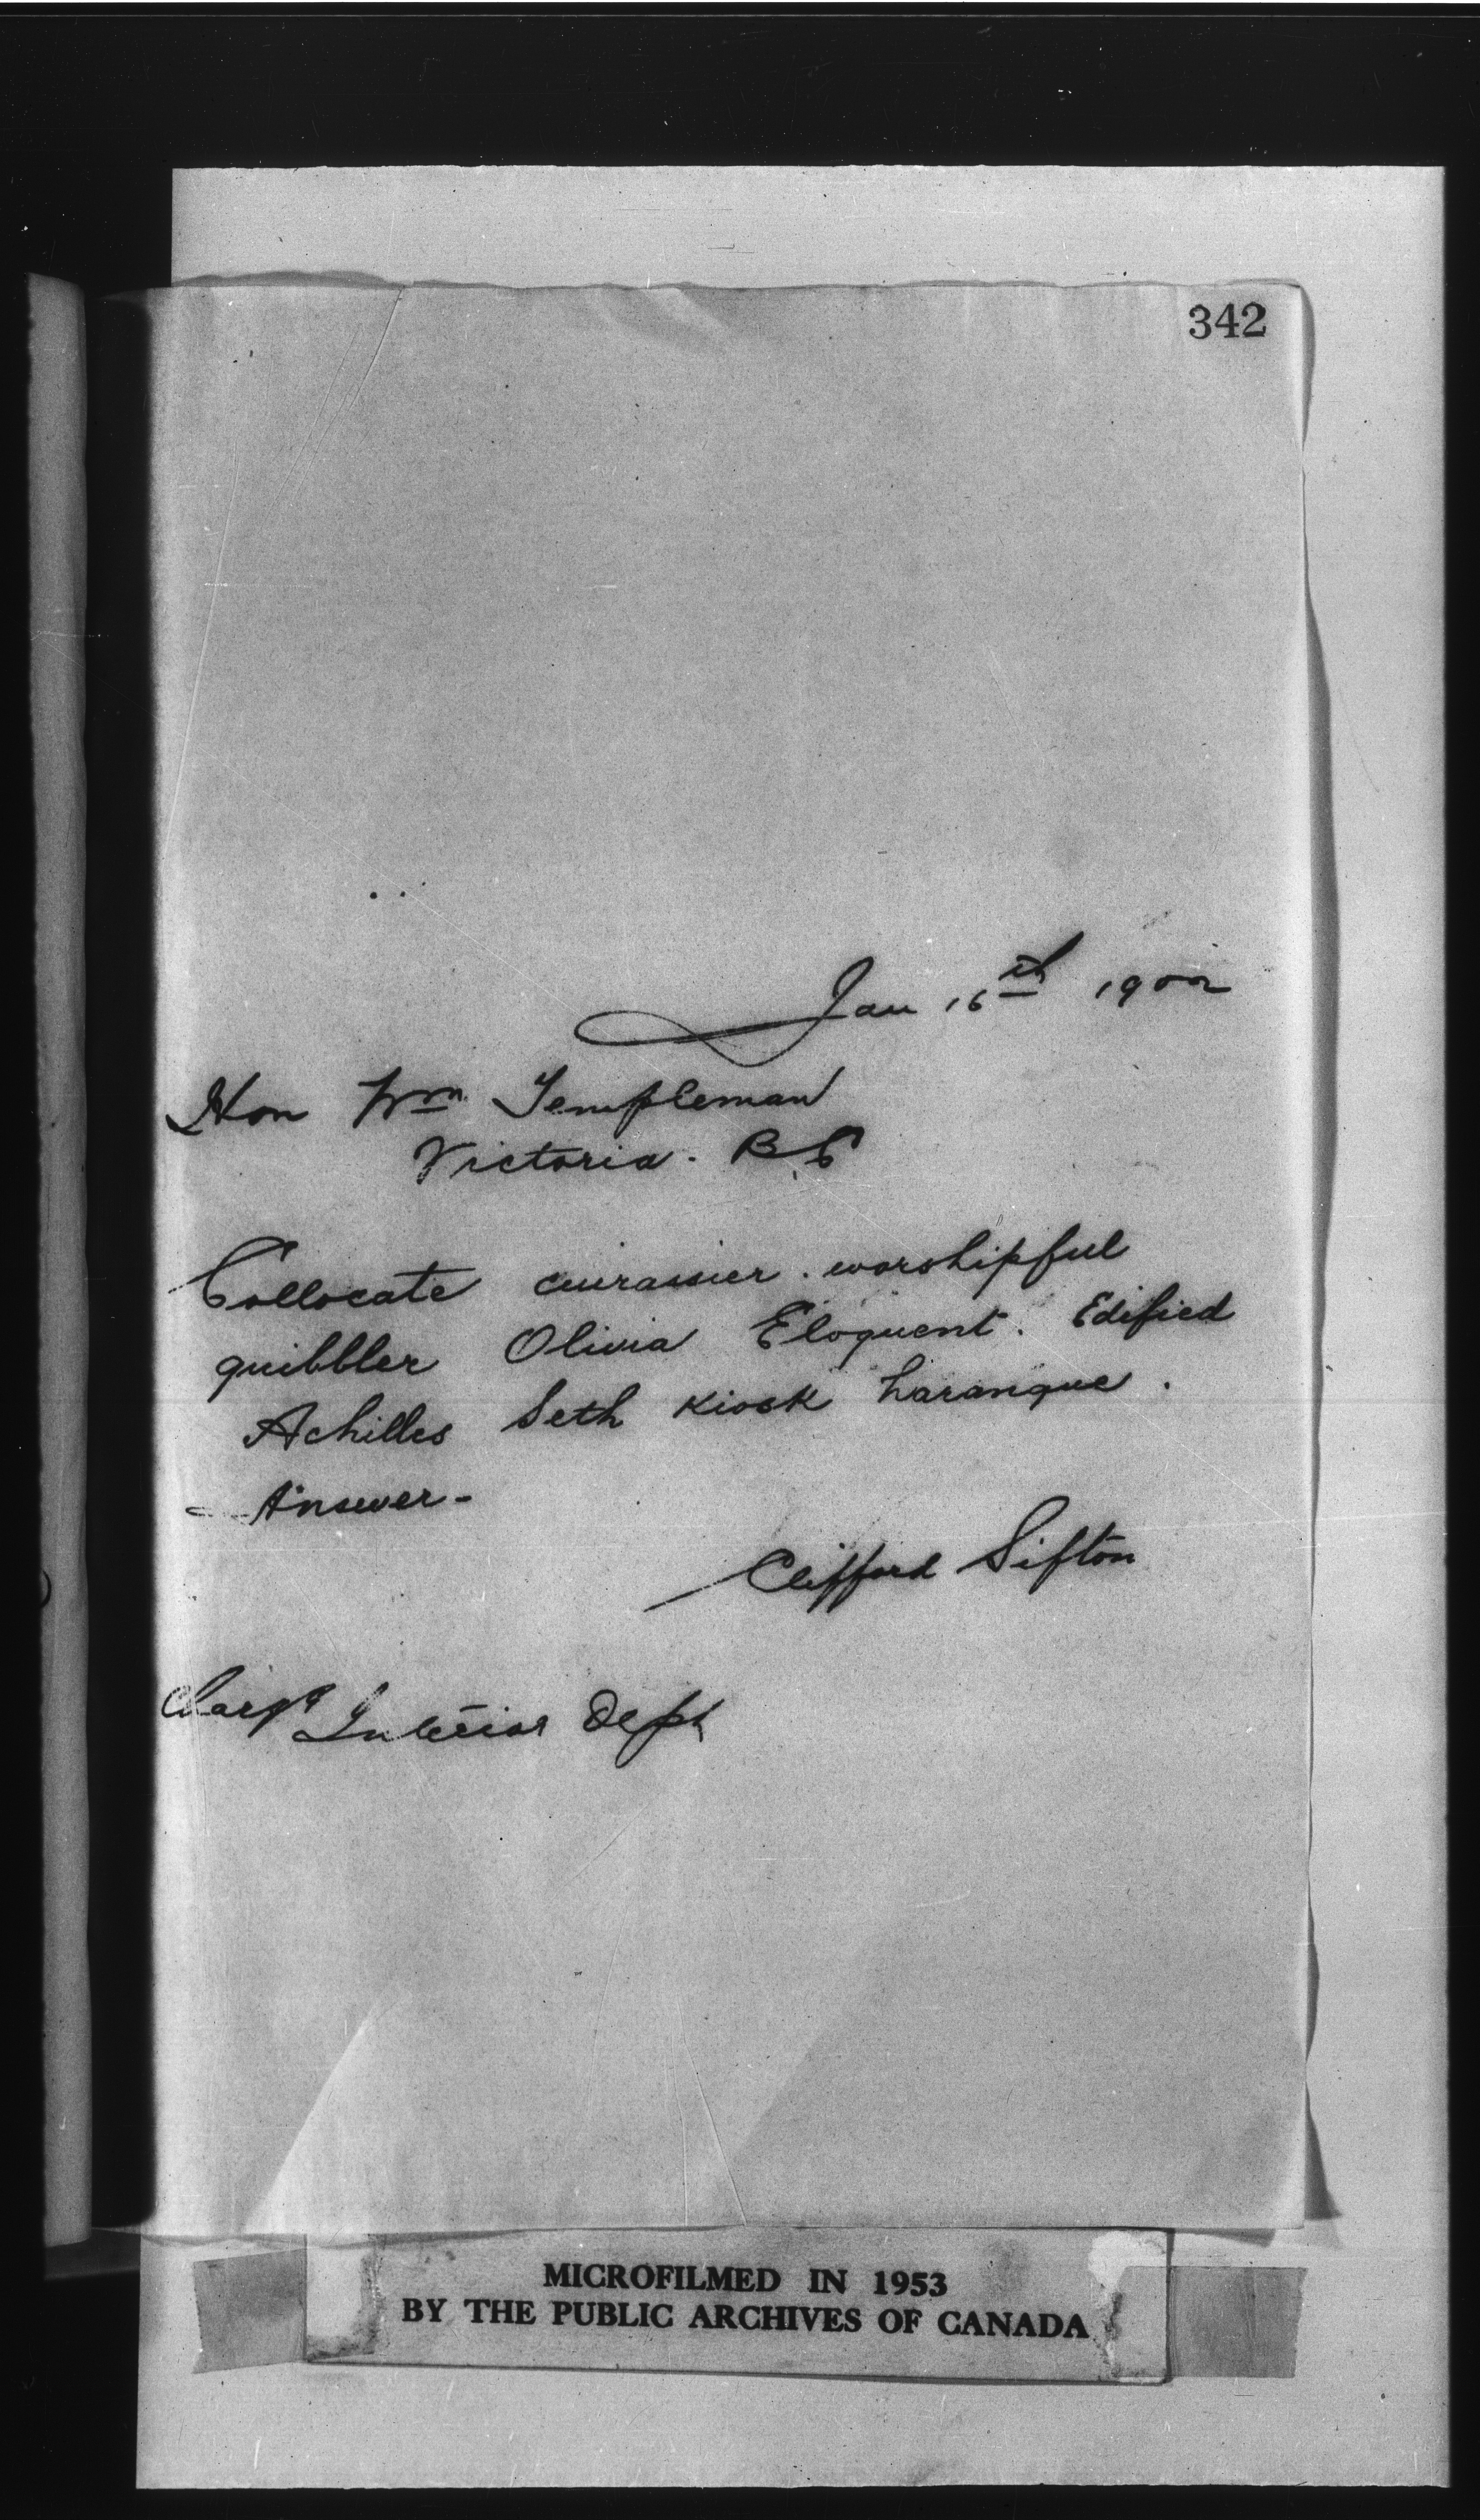 342
Jan 16th 1902
Hon Wm Templeman
Victoria. B.C
Collocate cuirassier. worshipful
quibbler Olivia Eloquent. Edified
Achilles Seth kiosk harangue.
- Answer -
Clifford Sifton
Charge Interior Dept
MICROFILMED IN 1953
BY THE PUBLIC ARCHIVES OF CANADA